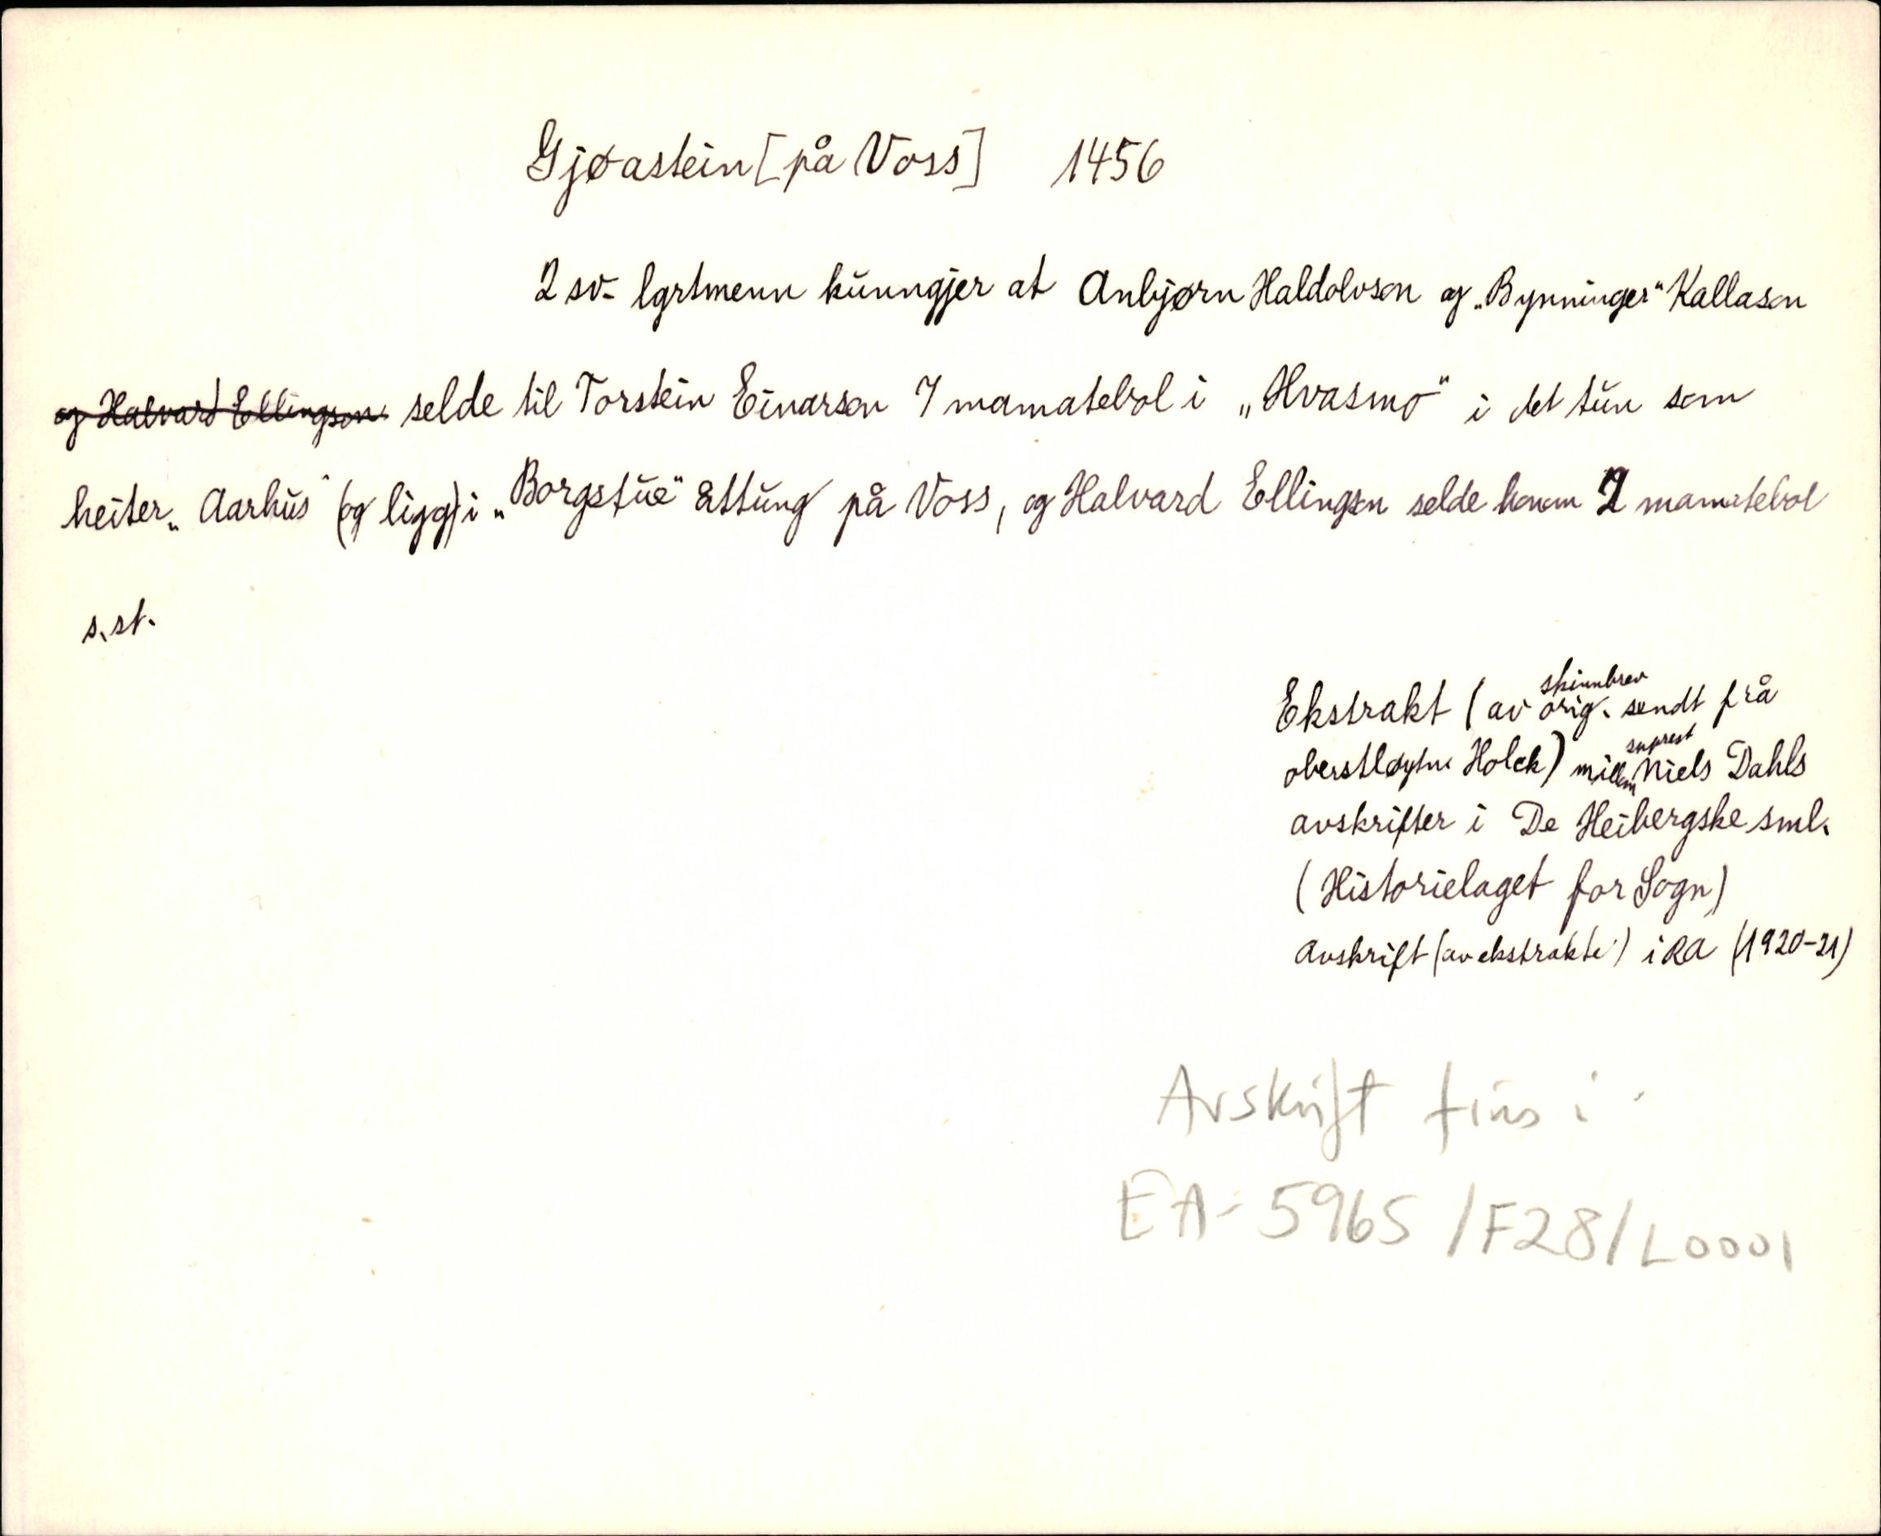 Gjøastein [på Voss] 1456
2 sv. lgrtmenn kunngjer at Anbjørn Haldolvson og „Bynninger“ Kallason
og Halvard Ellingson selde til Torstein Einarson 7 mamatebol i „Hvasmo“ i det tun som
heiter „Aarhus“ (og ligg) i „Borgstue“ åttung på Voss, og Halvard Ellingsn selde honom 2 mamatebol
s.st.
Ekstrakt (av orig. skinnbrev sendt frå
oberstløytn. Holck) millom soprest Niels Dahls
avskrifter i De Heibergske sml.
(Historielaget for Sogn)
Avskrift (av ekstrakte) i RA (1920-21)
Avskrift fins i
EA-5965/F28/L0001